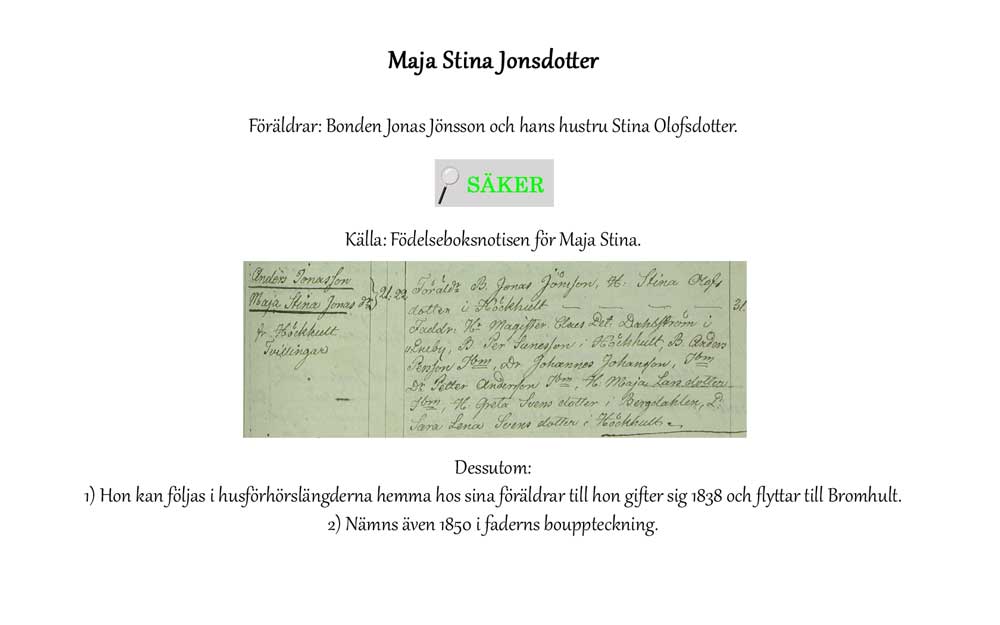 Maja Stina Jonsdotter
Föräldrar: Bonden Jonas Jönsson och hans hustru Stina Olofsdotter.
SÄKER
Källa: Födelseboksnotisen för Maja Stina.
Anders Jonasson
Maja Stina Jonas dr
fr Höckhult
Tvillingar
21. 22
Föräldr B. Jonas Jönsson, H. Stina Olofs
dotter i Höckhult
31.
Faddr: Hr Magister Claes Pet. Dahlström i
B Per Sunesson i Höckhult, B. Anders
Persson Ibm, Dr Johannes Johansson, Ibm
Dr Petter Andersson Ibm, H. Maja Lars dotter
Ibm, H. Greta Svens dotter i Bergdahlen, P.
Sara Lena Svens dotter i Höckhult
Dessutom:
1) Hon kan följas i husförhörslängderna hemma hos sina föräldrar till hon gifter sig 1838 och flyttar till Bromhult.
2) Nämns även 1850 i faderns bouppteckning.